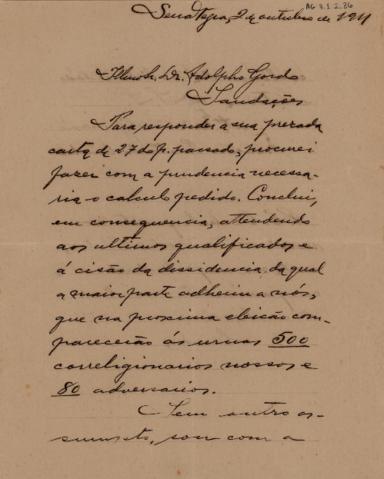 AG 3.1.2.26
2 de outubro de 1911
Illmo Sr. Dr. Adolpho Gordo
Saudações
Para responder a sua prezada
carta de 27 do p. passado, procurei
fazer com a prudencia necessa-
ria o calculo pedido. Conclui,
em consequencia, attendendo
aos ultimos qualificados e
á cisão da dissidencia da qual
a maior parte adheriu a nós,
que na proxima eleição com-
parecerão ás urnas 500
correligionarios nossos e
80 adversarios.
Sem outro as-
sumpto, sou com a